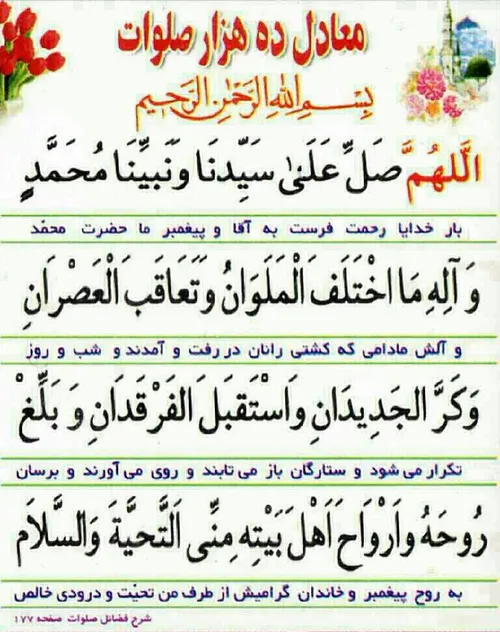 معادل ده هزار صلوات
بِسْمِ اللهِ الرَّحْمٰنِ الرَّحیمِ
اَللّٰهُمَّ صَلِّ عَلَیٰ سَیِّدِنَا وَ نَبِیِّنَا مُحَمَّدٍ
بار خدایا رحمت فرست به آقا و پیغمبر ما حضرت محمّد
وَ آلِهِ مَا اخْتَلَفَ الْمَلَوَانُ وَ تَعَاقَبَ الْعَصْرَانِ
و آلش مادامی که کشتی رانان در رفت و آمدند و شب و روز
وَکَرَّ الجَدِیدَانِ وَاسْتَقبَلَ الفَرْقَدَانِ وَ بَلِّغْ
تکرار می شود و ستارگان باز می تابند و روی می آورند و برسان
رُوحَهُ وَاَرْوَاحَ اَهْلِ بَیْتِهِ مِنِّی اَلتَّحیَّةَ وَالسَّلَامَ
به روح پیغمبر و خاندان گرامیش از طرف من تحیّت و درودی خالص
شرح فضائل صلوات صفحه ۱۷۷